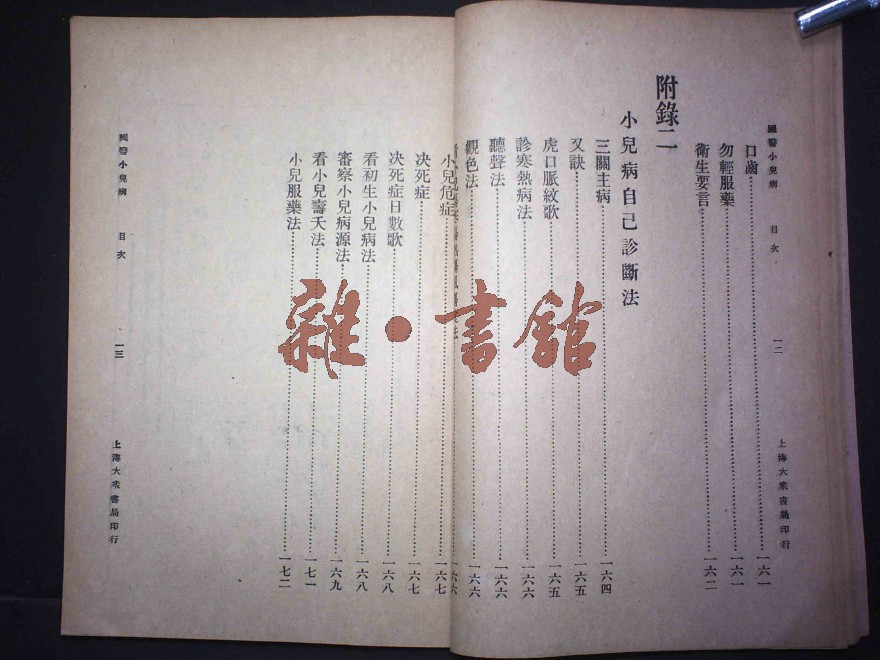 國醫小兒病 目次 一二 上海大衆書局印行
口齒 一六一
勿輕服藥 一六一
衛生要言 一六二
附錄二
小兒病自己診斷法
三關主病 一六四
又訣 一六五
虎口脈紋歌 一六五
診寒熱病法 一六六
聽聲法 一六六
觀色法 一六六
一六六
小兒危症 一六七
决死症 一六七
决死症日數歌 一六八
看初生小兒病法 一六八
審察小兒病源法 一六九
看小兒壽夭法 一七一
小兒服藥法 一七二
國醫小兒病 目次 一三 上海大衆書局印行
雜·書館